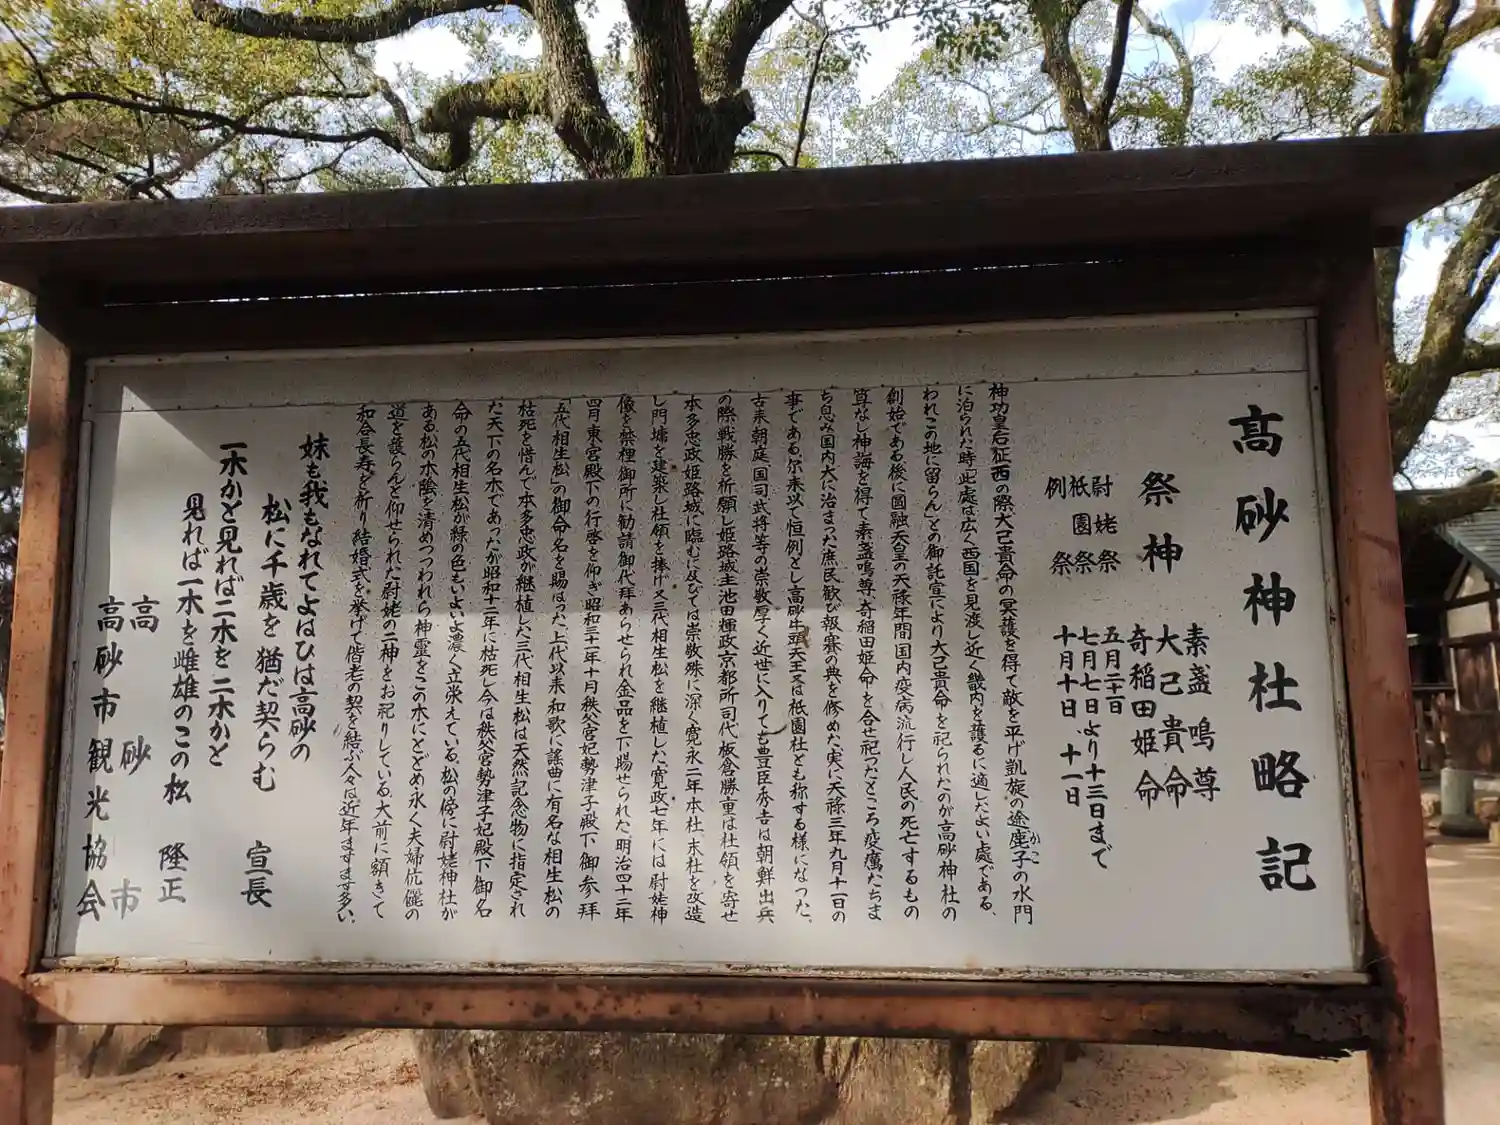 高砂神社略記
祭神
素盞鳴尊
大己貴命
奇稲田姫命
尉姥祭 五月二十一日
祇園祭 七月七日より十三日まで
例祭 十月十日、十一日
神功皇后征西の際大己貴命の冥護を得て敵を平げ凱旋の途鹿子の水門
かこ
に泊られた時「此處は広く西国を見渡し近く畿内を護るに適したよい處である、
われこの地に留らん」との御託宣により大己貴命を祀られたのが高砂神社の
創始である後に圓融天皇の天禄年間国内疫病流行し人民の死亡するもの
算なし神誨を得て素盞鳴尊、奇稲田姫命を合せ祀つたところ疫癘たちま
ち息み国内大に治まつた庶民歓び報賽の典を修めた実に天禄三年九月十一日の
事である、尓来以て恒例とし高砂牛頭天王又は祇園社とも称する様になつた。
古来朝庭、国司武将等の崇敬厚く近世に入りても豊臣秀吉は朝鮮出兵
の際戦勝を祈願し姫路城主池田輝政京都所司代板倉勝重は社領を寄せ
本多忠政姫路城に臨むに及びては崇敬殊に深く寛永二年本社、末社を改造
し門墉を建築し社領を捧げ又三代相生松を継植した寛政七年には尉姥神
像を禁裡御所に勧請御代拜あらせられ金品を下賜せられた、明治四十二年
四月東宮殿下の行啓を仰ぎ昭和三十一年十月秩父宮妃勢津子殿下御参拜
「五代相生松」の御命名を賜はつた、上代以来和歌に謡曲に有名な相生松の
枯死を惜んで本多忠政が継植した三代相生松は天然記念物に指定され
た天下の名木であつたが昭和十二年に枯死し今は秩父宮勢津子妃殿下御名
命の五代相生松が緑の色もいよいよ濃く立栄えている、松の傍に尉姥神社が
ある、松の木陰を清めつつわれら神霊をこの木にとどめ永く夫婦伉儷の
道を護らんと仰せられた尉姥の二神をお祀りしている、大前に額きて
和合長寿を祈り結婚式を挙げて偕老の契を結ぶ人々は近年ますます多い、
妹も我もなれてよはひは高砂の
松に千歳を猶だ契らむ 宣長
一木かと見れば二木を二木かと
見れば一木を雌雄のこの松 隆正
高砂市
高砂市観光協会